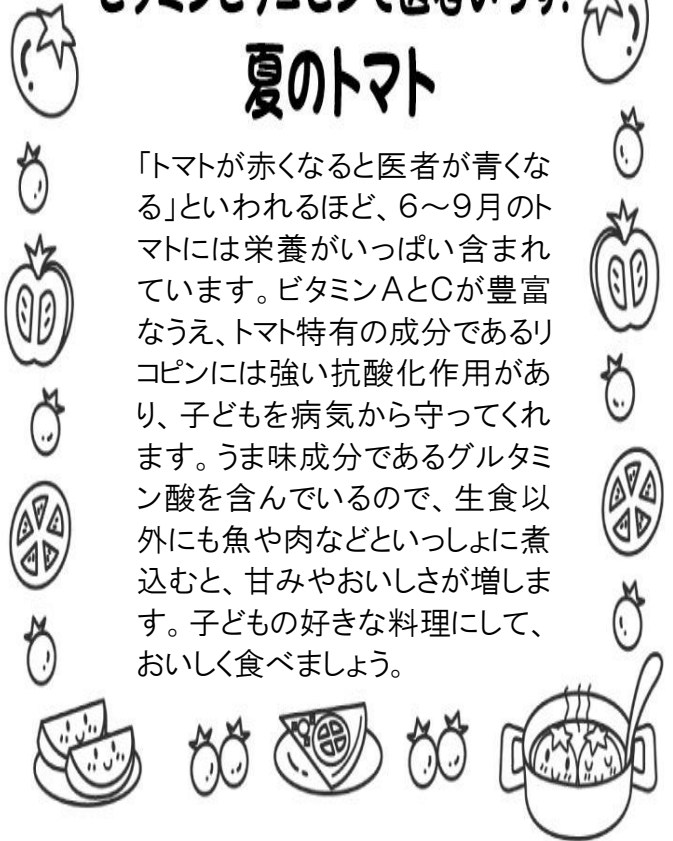 ビタミンとリコピンで医者いらず!
夏のトマト
「トマトが赤くなると医者が青くな
る」といわれるほど、6～9月のト
マトには栄養がいっぱい含まれ
ています。ビタミンAとCが豊富
なうえ、トマト特有の成分であるリ
コピンには強い抗酸化作用があ
り、子どもを病気から守ってくれ
ます。うま味成分であるグルタミ
ン酸を含んでいるので、生食以
外にも魚や肉などといっしょに煮
込むと、甘みやおいしさが増しま
す。子どもの好きな料理にして、
おいしく食べましょう。